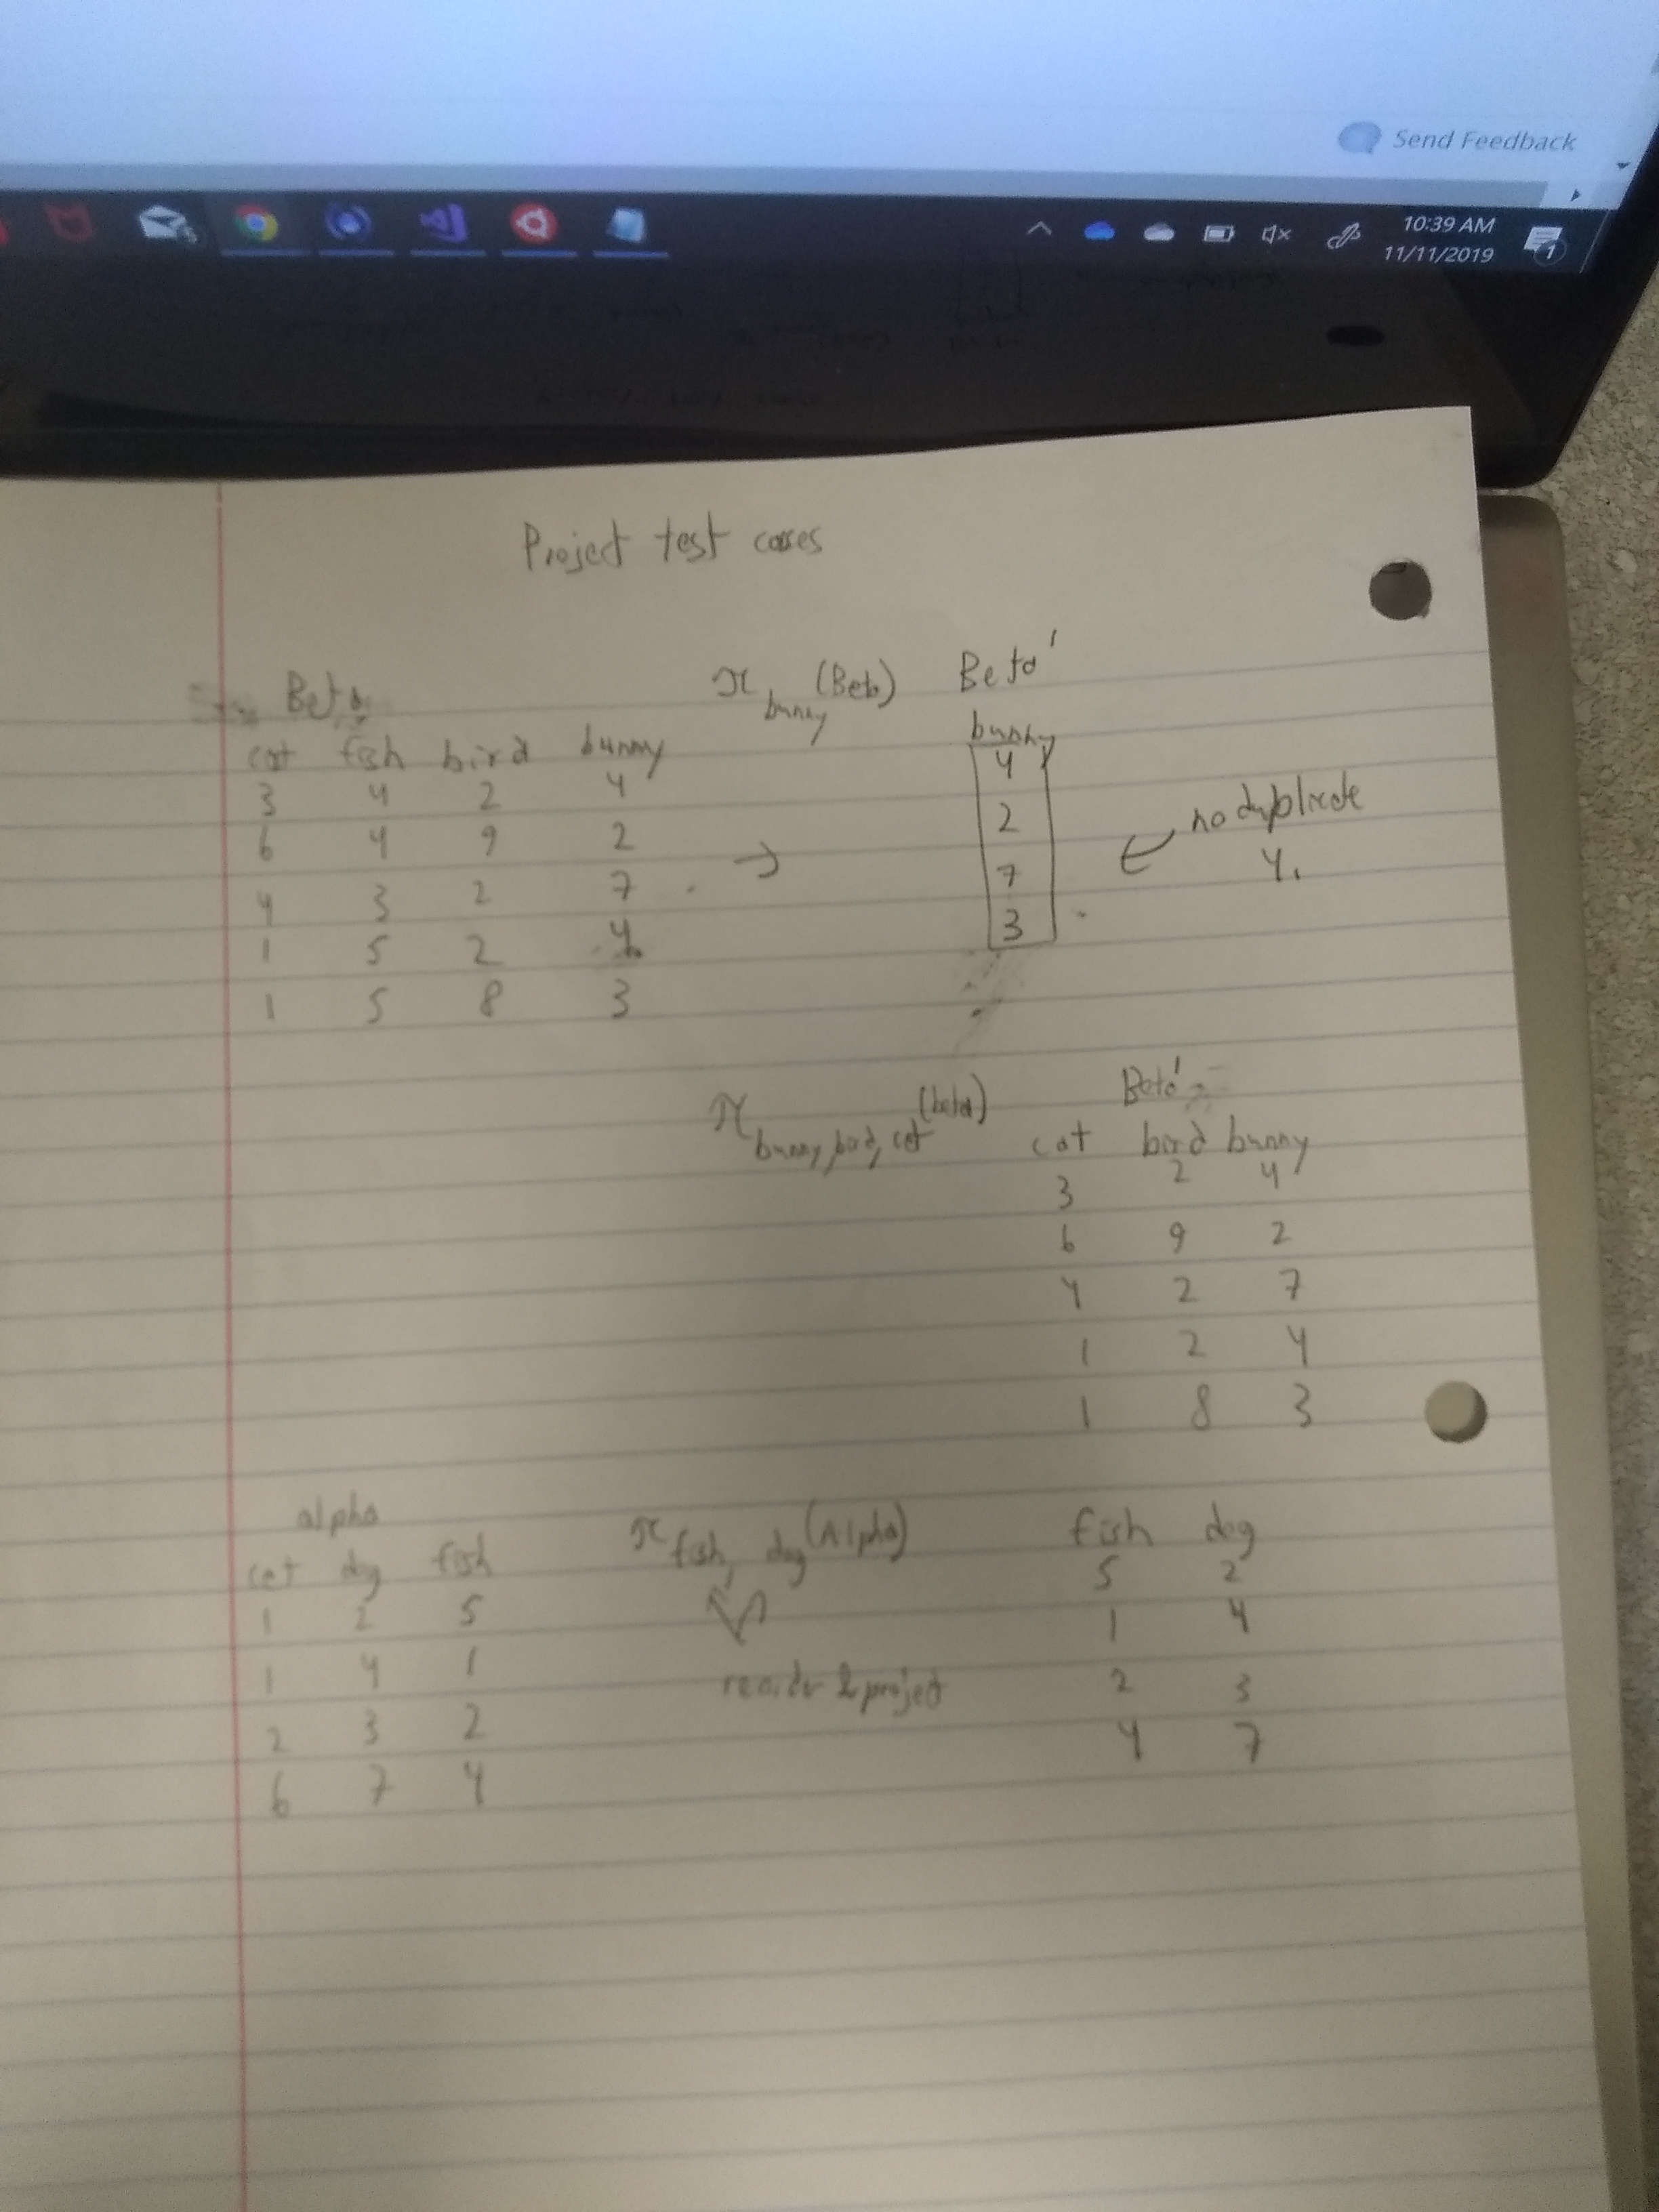 Send Feedback
10:39 AM
11/11/2019
1
Project test cases
Beta
cat fish bird bunny
3 4 2 4
6 4 9 2
4 3 2 7
1 5 2 4
1 5 8 3
π bunny (Beta) Beta'
bunny
4
2
7
3
→
no duplicate
4.
π bunny, bird, cat (beta)
Beta'
cat bird bunny
3 2 4
6 9 2
4 2 7
1 2 4
1 8 3
alpha
cat dog fish
1 2 5
1 4 1
2 3 2
6 7 4
π fish, dog (Alpha)
reorder & project
fish dog
5 2
1 4
2 3
4 7